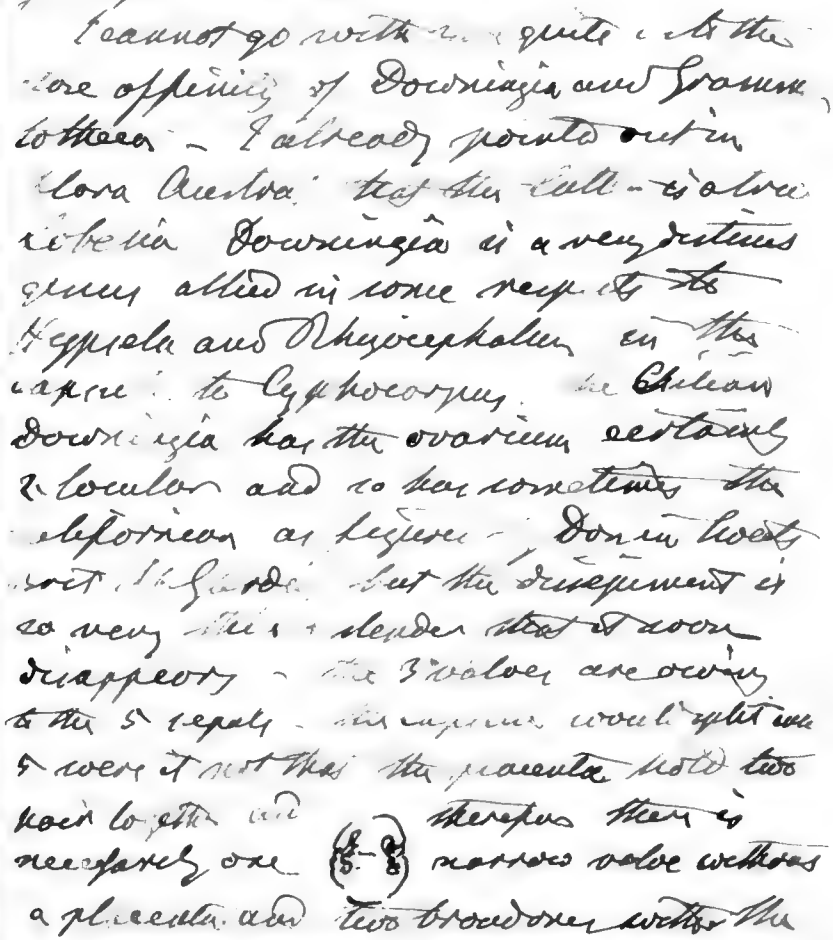 I cannot go with quite to the
close affinity of Downingia and Gramma
totheca - I already pointed out in
Flora Austral that the latter is a true
Lobelia Downingia is a very distinct
genus allied in some respects to
Hypsela and Rhizocephalum in the
capsule to Cyphocarpus. The Chilian
Downingia has the ovarium certainly
2 locular and so has sometimes the
Californian as figured Don in Sweets
Brit Fl Gard. but the dissepiment is
so very thin & slender that it soon
disappears - the 3 valves are owing
to the 5 sepals - the capsule would split into
5 were it not that the placenta hold two
pair together and therefore there is
necessarily one narrow valve without
a placenta and two broad ones with the